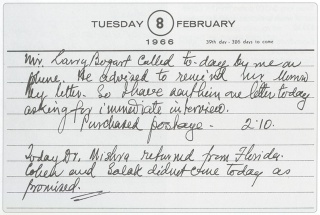 TUESDAY 8 FEBRUARY
1966 39th day - 326 days to come
Mr. Larry Bogart called to-day by me on
phone. He advised to remind his
my letter. So I have another one letter today
asking for immediate interview.
Purchased postage - 2.10.
Today Dr. Mishra returned from Florida.
and didnot come today as
promised.